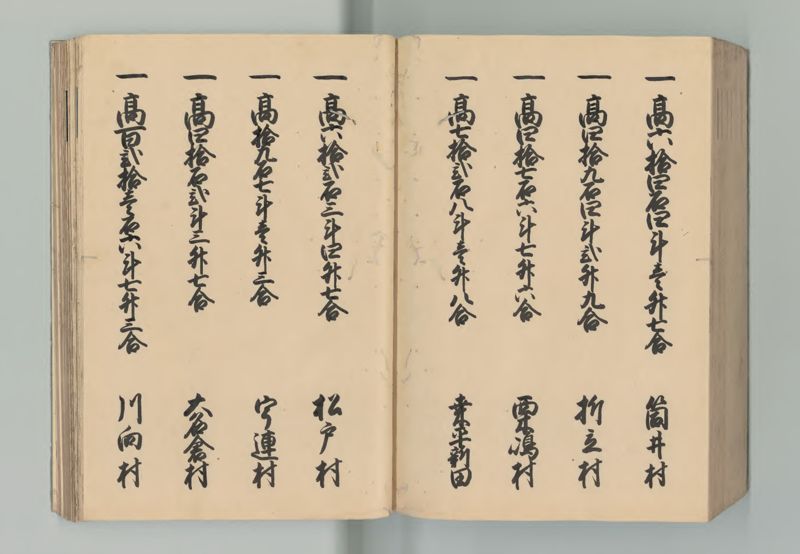 一 高六拾四石四斗壱升七合 筒井村
一 高四拾九石四斗弐升九合 折立村
一 高四拾七石六斗七升六合 栗嶋村
一 高七拾弐石八斗壱升八合 幸平新田
一 高六拾弐石三斗四升七合 松戸村
一 高拾九石七斗壱升三合 宇連村
一 高四拾石弐斗三升七合 大名倉村
一 高百弐拾壱石六斗七升三合 川向村